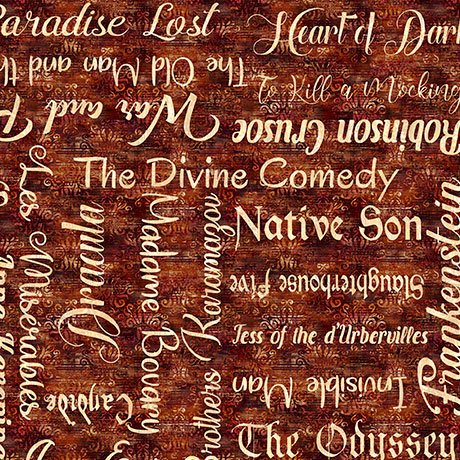 Paradise Lost
Heart of Dark
The Old Man and th
To Kill a Mocking
War and P
Robinson Crusoe
The Divine Comedy
Les Misérables
Dracula
Madame Bovary
Brothers Karamazov
Native Son
Slaughterhouse Five
Tess of the d'Urbervilles
Frankenstein
Invisible Man
Candide
Anna Karenina
The Odyssey